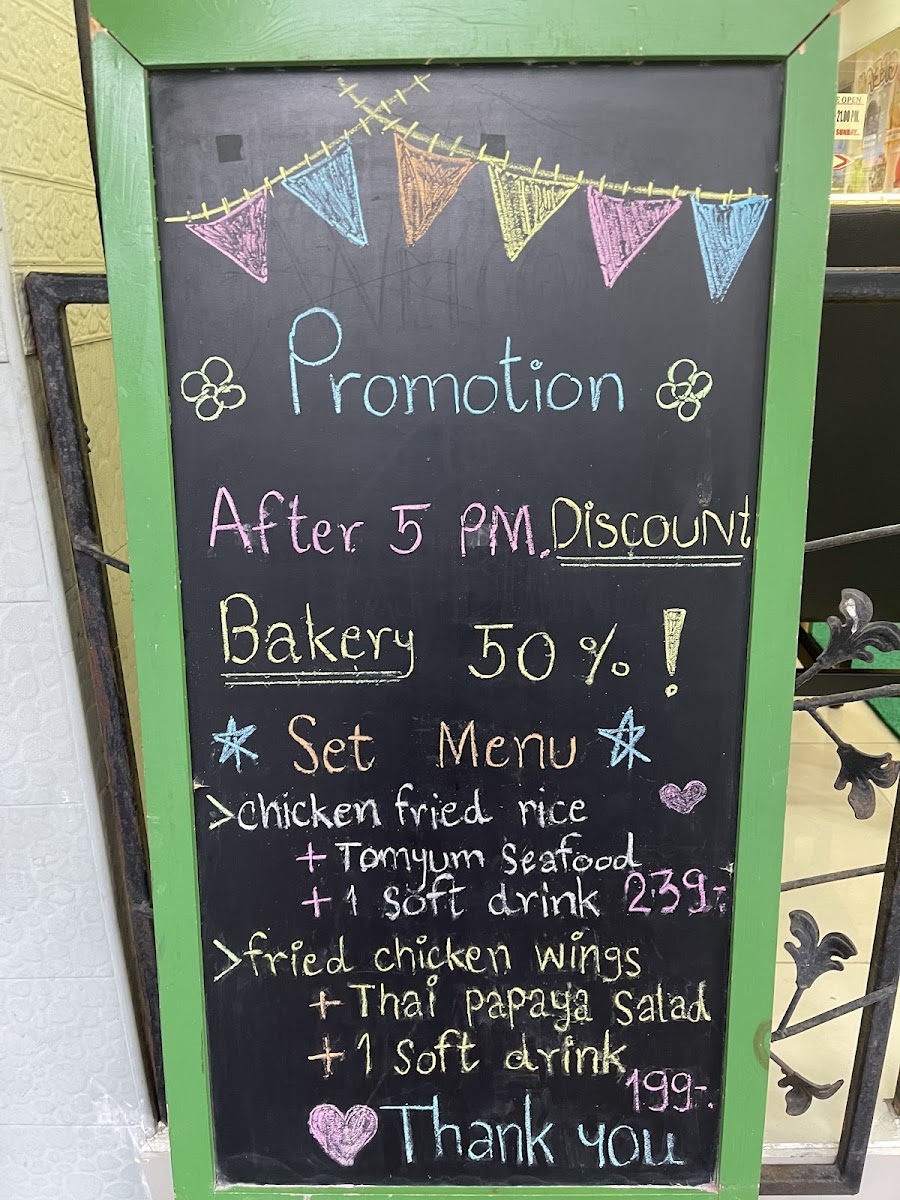 E OPEN
21.00 P.M.
SUNDAY
Promotion
After 5 PM. Discount
Bakery 50% !
Set Menu
>chicken fried rice
+ Tomyum Seafood
+ 1 soft drink 239.-
>fried chicken wings
+ Thai papaya salad
+ 1 soft drink
199.-
Thank you